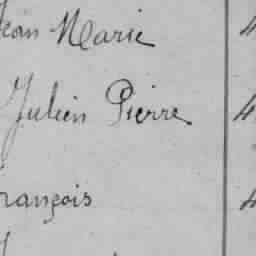 Jean Marie 4
Julien Pierre 4
François 4